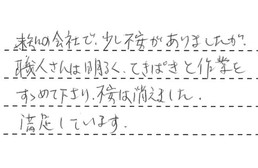 の会社で、少し不安がありましたが、
職人さんは明るく、てきぱきと作業を
すすめて下さり、不安は消えました。
満足しています。